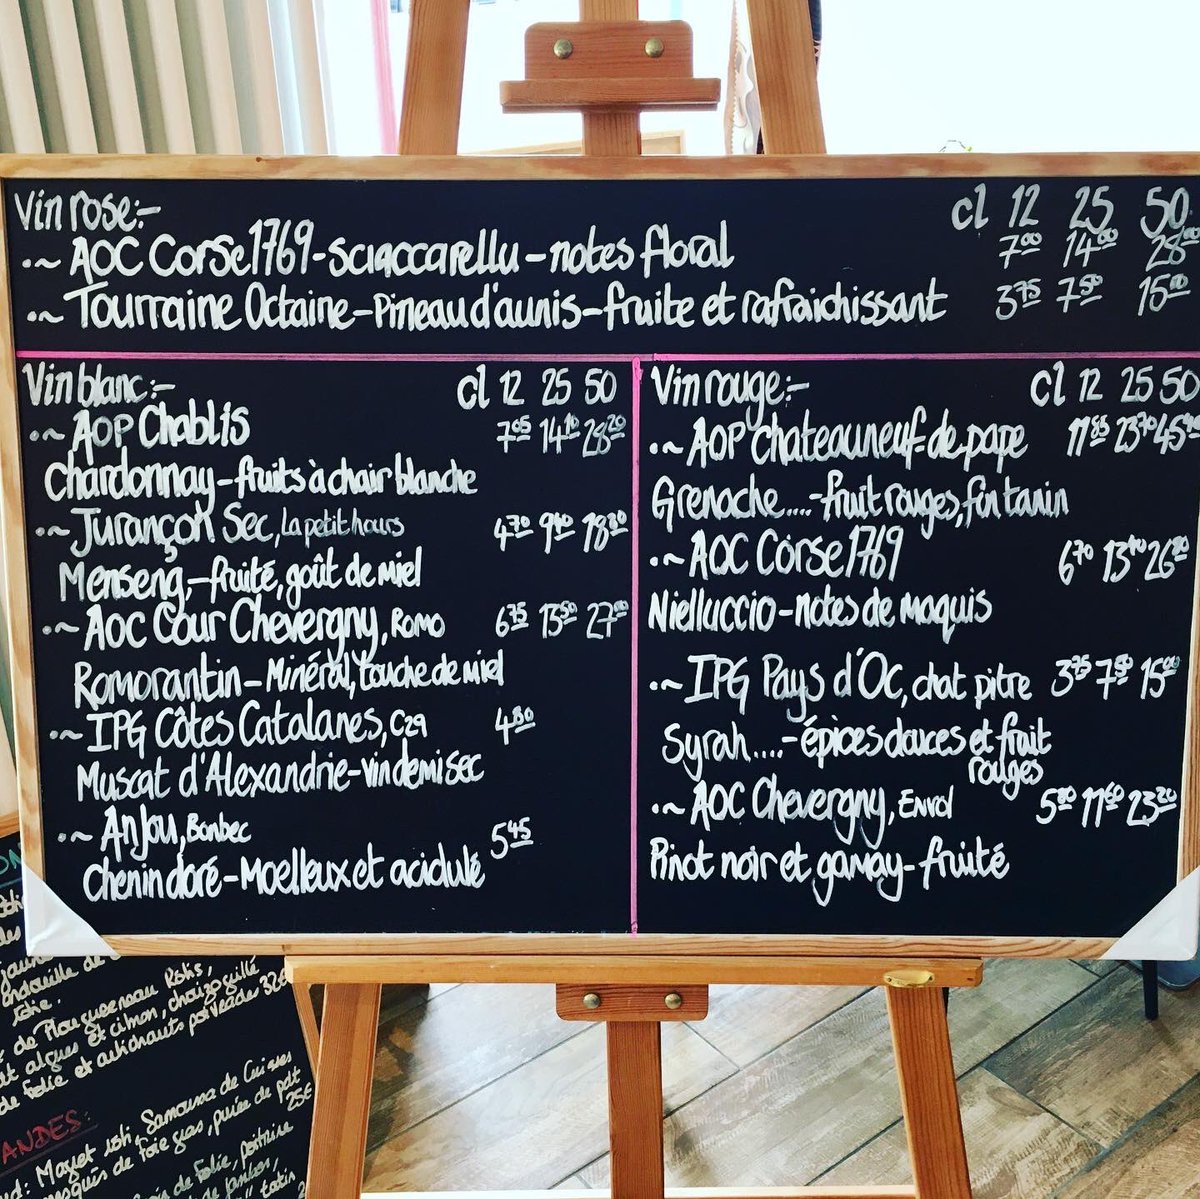 Vin rose:- cl 12 25 50
.~ AOC Corse 1769 - Sciaccarellu - notes floral 7.00 14.00 28.00
.~ Tourraine Octaine - Pineau d'aunis - fruite et rafraichissant 3.75 7.50 15.00
Vin blanc:- cl 12 25 50
.~ AOP Chablis 7.05 14.10 28.20
Chardonnay - fruits à chair blanche
.~ Jurançon Sec, La petit hours 4.70 9.40 18.80
Menseng, - fruité, goût de miel
.~ AOC Cour Chevergny, Romo 6.75 13.50 27.00
Romorantin - Minéral, touche de miel
.~ IPG Côtes Catalanes, C29 4.80
Muscat d'Alexandrie - vin demi sec
.~ Anjou, Bonbec 5.45
Chenin doré - Moelleux et acidulé
Vin rouge:- cl 12 25 50
.~ AOP Chateauneuf-de-pape 11.85 23.70 45.40
Grenache.... - fruit rouges, fin tanin
.~ AOC Corse 1769 6.70 13.40 26.80
Nielluccio - notes de maquis
.~ IPG Pays d'Oc, chat pitre 3.75 7.50 15.00
Syrah.... - épices douces et fruit
rouges
.~ AOC Chevergny, Enrol 5.80 11.60 23.20
Pinot noir et gamay - fruité
ON
des
jaune
andouille de
folie.
de Plouguerneau Rôtis,
algues et citron, chorizo grillé
de folie et artichauts poivrades 32€
ANDES:
: Magret rôti, Samoussa de Cuisses
de foie gras, purée de pdt
25€
de Folie, poitrine
de jambon,
tatin